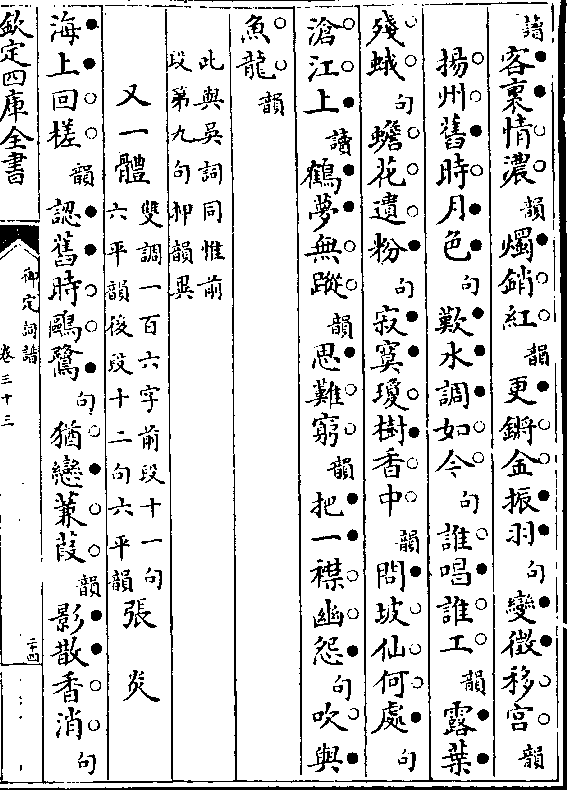 讀客裏情濃韻燭銷紅韻更鏘金振羽句變徵移宮韻
揚州舊時月色句歎水調如今句誰唱誰工韻露葉
殘蛾句蟾花遺粉句寂寞瓊樹香中韻問坡仙何處句
滄江上讀鶴夢無蹤韻思難窮韻把一襟幽怨句吹與
魚龍韻
此與吳詞同惟前
段第九句押韻異
又一體雙調一百六字前段十一句
六平韻後段十二句六平韻張炎
海上回槎韻認舊時鷗鷺句猶戀蒹葭韻影散香消句
欽定四庫全書
御定詞譜
卷三十三
二十四